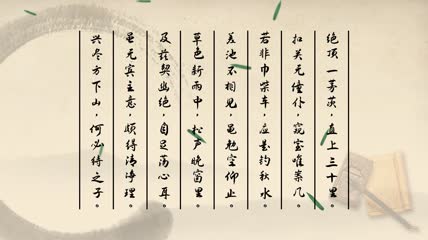 绝顶一茅茨，直上三十里。
扣关无僮仆，窥室唯案几。
若非巾柴车，应是钓秋水。
差池不相见，黾勉空仰止。
草色新雨中，松声晚窗里。
及兹契幽绝，自足荡心耳。
虽无宾主意，颇得清净理。
兴尽方下山，何必待之子。